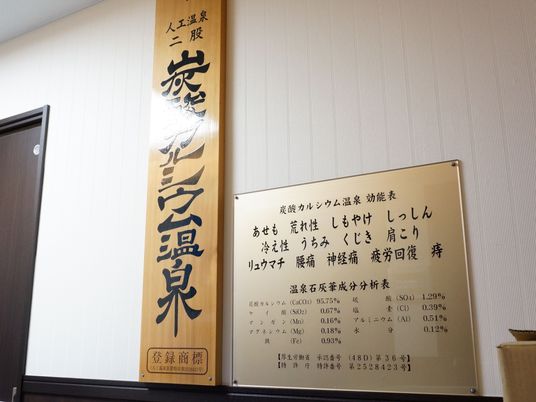 人工温泉
二股
炭酸カルシウム温泉
登録商標
炭酸カルシウム温泉 効能表
あせも 荒れ性 しもやけ しっしん
冷え性 うちみ くじき 肩こり
リュウマチ 腰痛 神経痛 疲労回復 痔
温泉石灰華成分分析表
炭酸カルシウム (CaCO₃) 95.75% 硫酸 (SO₄) 1.29%
ケイ酸 (SiO₂) 0.67% 塩素 (Cl) 0.39%
マンガン (Mn) 0.16% アルミニウム (Al) 0.51%
マグネシウム (Mg) 0.18%水分 0.12%
鉄 (Fe) 0.93%
【厚生労働省 承認番号 (48D)第36号】
【特許庁 特許番号 第2528423号】